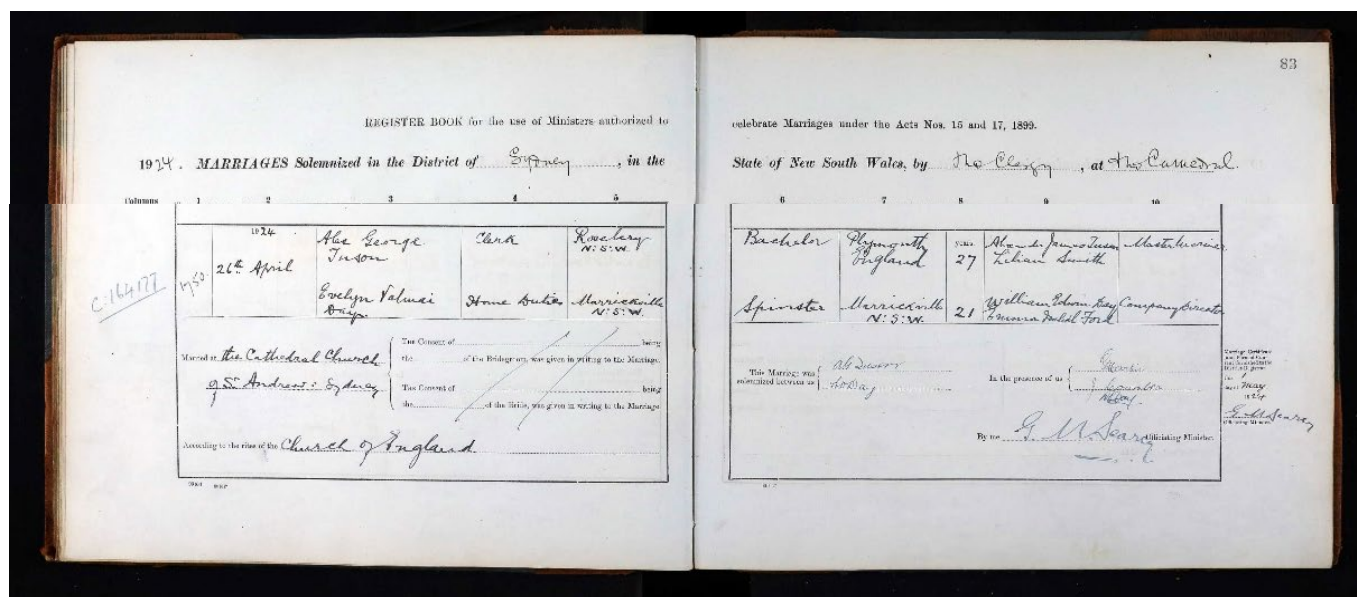 83
REGISTER BOOK for the use of Ministers authorized to
celebrate Marriages under the Acts Nos. 15 and 17, 1899.
1924. MARRIAGES Solemnized in the District of Sydney, in the
State of New South Wales, by the Clergy, at the Cathedral.
Columns 1 2 3 4 5
6 7 8 9 10
1924
26th April
C:164177
1750
Alec George Tuson
Clerk
Rosebery N.S.W.
Bachelor
Plymouth England
years
27
James Tuson
Lilian Smith
Master Mariner
Evelyn Valmai Day
Home Duties
Marrickville N.S.W.
Spinster
Marrickville N.S.W.
21
William Edwin Day
Emma Ford
Company Director
Married at the Cathedral Church
of St. Andrew's Sydney
The Consent of being
the of the Bridegroom, was given in writing to the Marriage.
The Consent of being
the of the Bride, was given in writing to the Marriage
According to the rites of the Church of England
This Marriage was
solemnized between us
In the presence of us
By me G. M. Searcy Officiating Minister.
Marriage Certificate
May
1924
G. M. Searcy
Officiating Minister